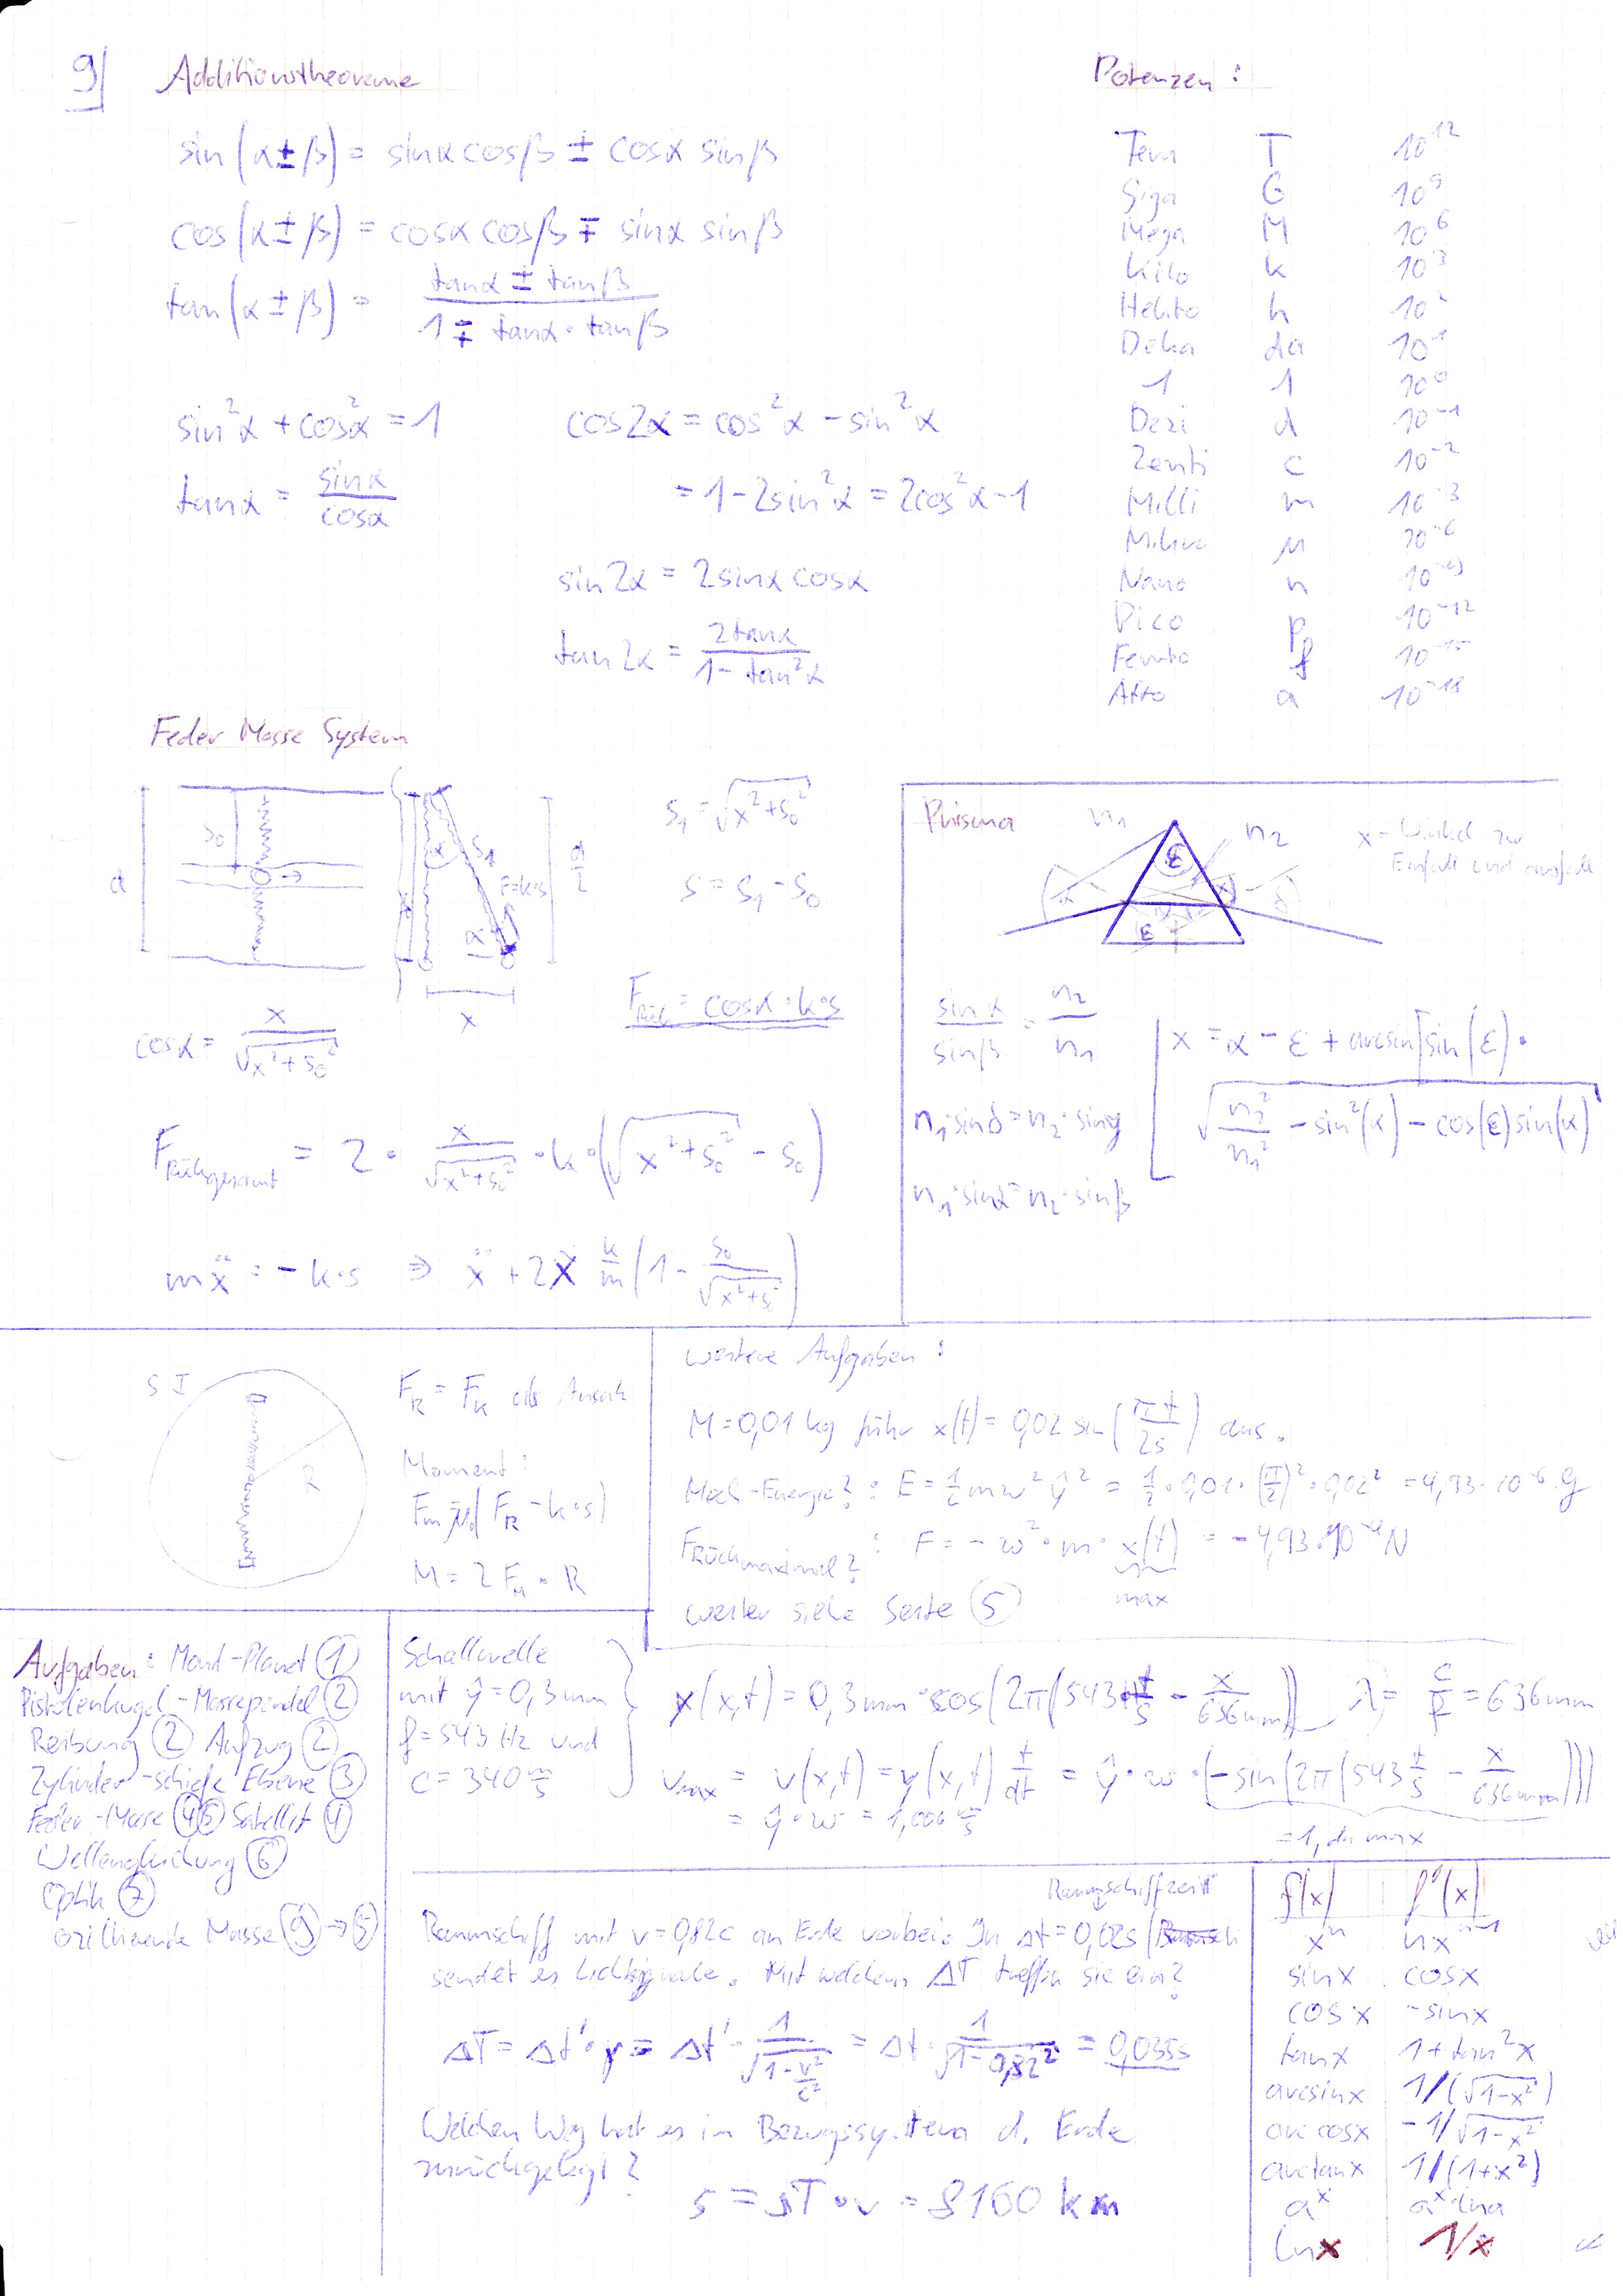 9
Additionstheoreme
sin(α±β) = sinα cosβ ± cosα sinβ
cos(α±β) = cosα cosβ ∓ sinα sinβ
tan(α±β) = (tanα ± tanβ) / (1 ∓ tanα · tanβ)
sin²α + cos²α = 1
tanα = sinα / cosα
cos2α = cos²α − sin²α
= 1 − 2sin²α = 2cos²α − 1
sin2α = 2sinα cosα
tan2α = 2tanα / (1 − tan²α)
Potenzen:
Tera T 10^12
Giga G 10^9
Mega M 10^6
Kilo k 10^3
Hekto h 10^2
Deka da 10^1
1 1 10^0
Dezi d 10^-1
Zenti c 10^-2
Milli m 10^-3
Mikro μ 10^-6
Nano n 10^-9
Pico p 10^-12
Femto f 10^-15
Atto a 10^-18
Feder Masse System
d
s₀
α
s₁
F=k·s
α
d/2
x
s₁ = √(x²+s₀²)
s = s₁ − s₀
F_Rück = cosα · k·s
cosα = x / √(x²+s₀²)
F_Rückgesamt = 2 · x/√(x²+s₀²) · k · (√(x²+s₀²) − s₀)
mẍ = −k·s ⇒ ẍ + 2x k/m (1 − s₀/√(x²+s₀²))
Prisma
n₁
n₂
ε
α
x
δ
ε
x = Winkel zw
Einfall und ausfall
sinα / sinβ = n₂ / n₁
n₁·sinδ = n₂·sinγ
n₁·sinα = n₂·sinβ
x = α − ε + arcsin[sin(ε) ·
√(n₂²/n₁² − sin²(α) − cos(ε) sin(α)
S I
R
F_R = F_K als Ansatz
Moment:
F_M = μ₀(F_R − k·s)
M = 2 F_M · R
weitere Aufgaben:
M = 0,01 kg führ x(t) = 0,02 sin(πt/2s) aus.
Mech-Energie?: E = ½mω²ŷ² = ½ · 0,01 · (π/2)² · 0,02² = 4,93·10^-6 J
F_Rückmaximal?: F = −ω² · m · x(t) = −4,93·10^-4 N
max
weiter siehe Seite 5
Aufgaben: Mond-Planet 1
Pistolenkugel-Massependel 2
Reibung 2 Aufzug 2
Zylinder-schiefe Ebene 3
Feder-Masse 4 5 Satellit 4
Wellengleichung 6
Optik 7
oszillierende Masse 9 → 5
Schallwelle
mit ŷ = 0,3mm
f = 543 Hz und
c = 340 m/s
y(x,t) = 0,3mm · cos(2π(543 t/s − x/636mm)) λ = c/f = 636mm
v_max = v(x,t) = y(x,t) t/dt = ŷ · ω · (−sin(2π(543 t/s − x/636mm)))
= ŷ · ω = 1,006 m/s
= 1, da max
Raumschiffzeit
Raumschiff mit v = 0,82c an Erde vorbei. In Δt = 0,02s
sendet es Lichtsignale. Mit welchem ΔT treffen sie ein?
ΔT = Δt'·γ = Δt' · 1/√(1−v²/c²) = Δt · 1/√(1−0,82²) = 0,035s
Welchen Weg hat es in Bezugssystem d. Erde
zurückgelegt?
s = ΔT · v = 8160 km
f(x) f'(x)
x^n nx^n-1
sinx cosx
cosx −sinx
tanx 1+tan²x
arcsinx 1/(√1−x²)
arccosx −1/√1−x²
arctanx 1/(1+x²)
a^x a^x lna
lnx 1/x